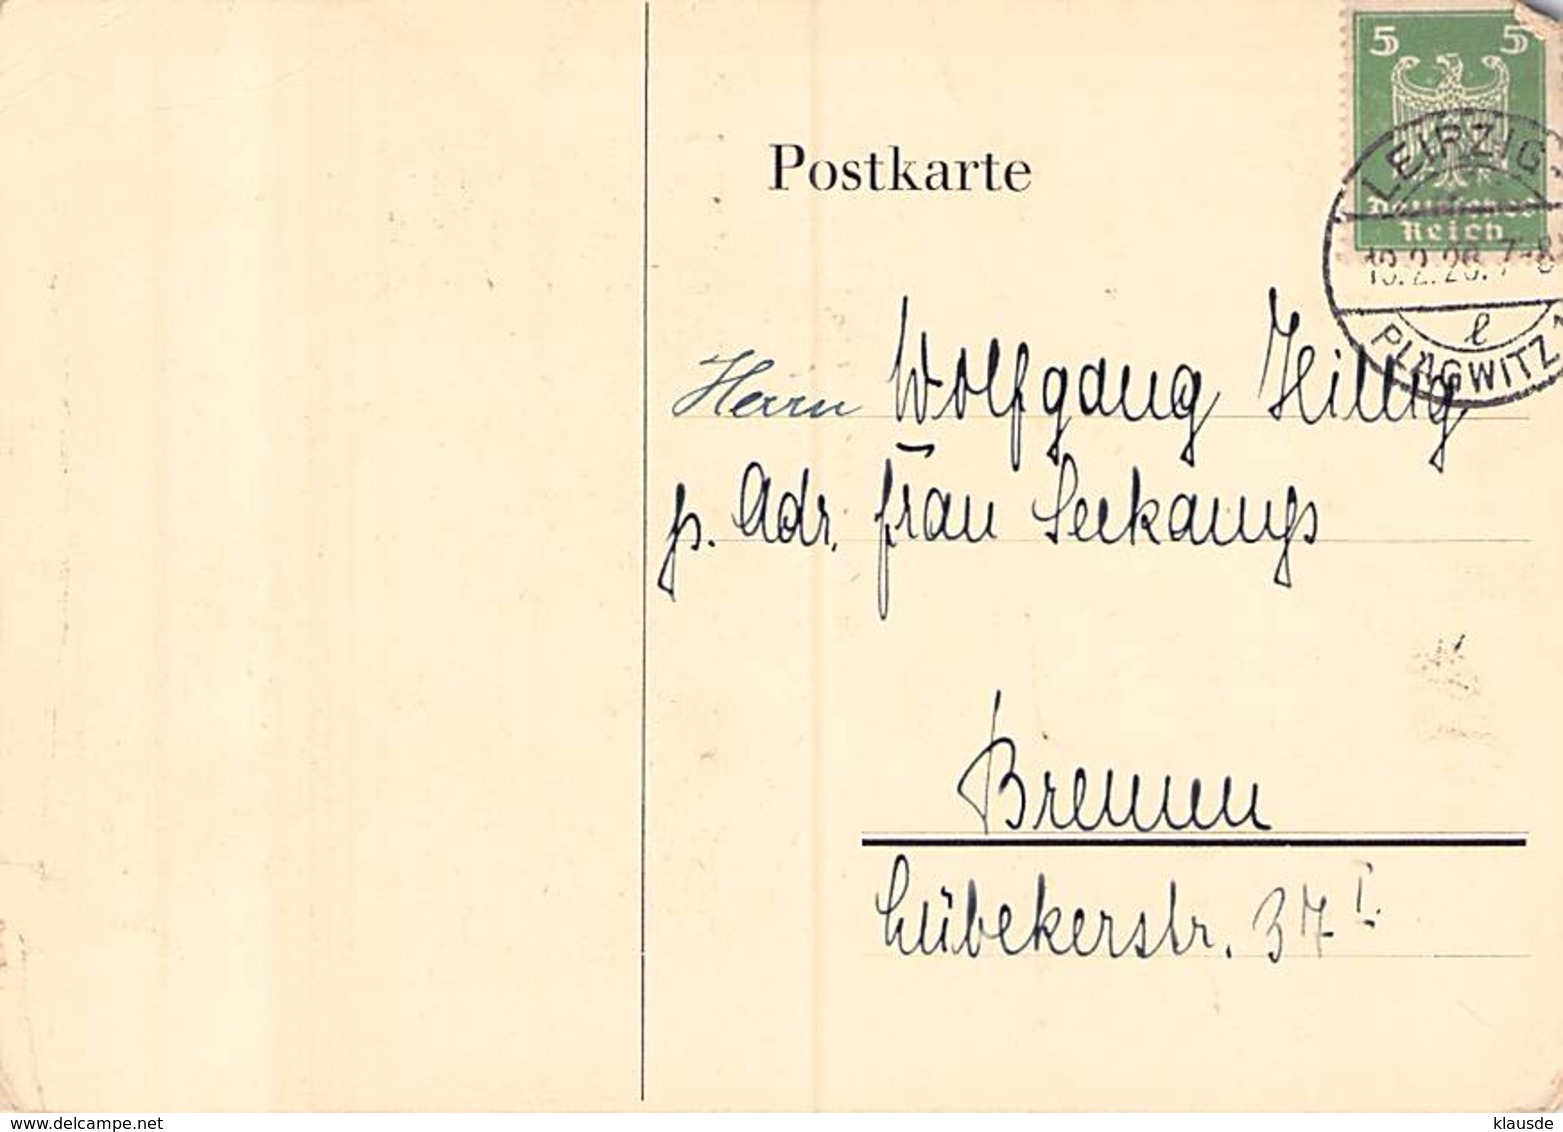 5 5
Deutsches
Reich
LEIPZIG
2.26.7-8
l
PLAGWITZ
Postkarte
Herrn Wolfgang Hillig
p. Adr. Frau Seekamp
Bremen
Lübekerstr. 37 I.
www.delcampe.net
klausde